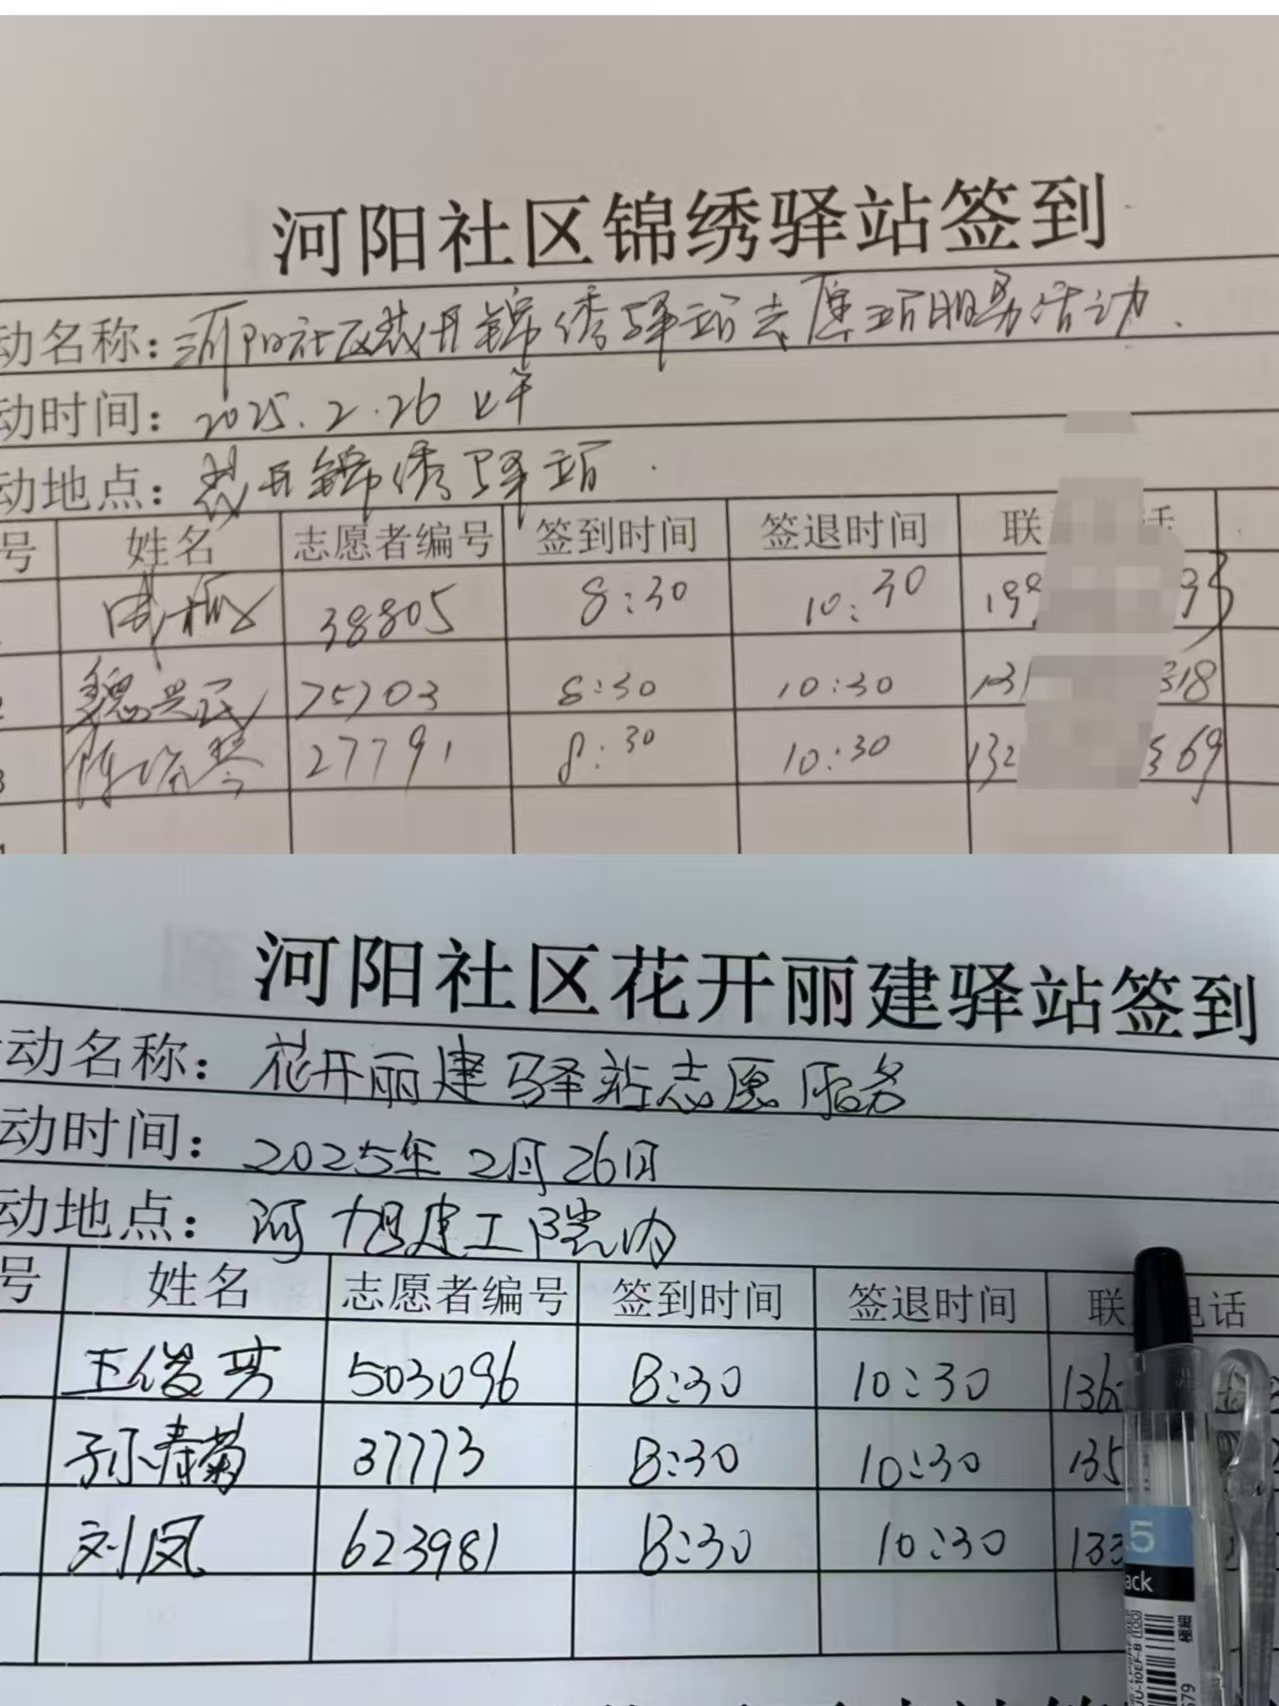 河阳社区锦绣驿站签到
动名称：河阳社区花开锦绣驿站志愿服务活动.
动时间：2025.2.26 上午
动地点：花开锦绣驿站.
号 姓名 志愿者编号 签到时间 签退时间 联 话
38805 8:30 10:30 199 93
2 魏兴民 75703 8:30 10:30 131 318
3 陈 琴 27791 8:30 10:30 132 569
河阳社区花开丽建驿站签到
动名称：花开丽建驿站志愿服务
动时间：2025年2月26日
动地点：河旭建工院内
号 姓名 志愿者编号 签到时间 签退时间 联 电话
王俊芳 503096 8:30 10:30 136
孙春菊 37773 8:30 10:30 135
刘凤 623981 8:30 10:30 133
.5
ack